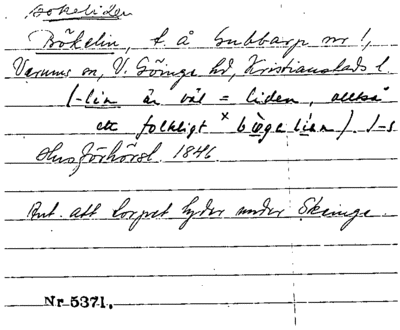 Bökeliden
Bökelin, t. å Gubbarp nr 1,
Verums sn, V. Göinge hd, Kristianstads l.
(-lin är väl = liden, alltså
ett folkligt × bögelian). I-s
Husförhörsl. 1846
Ant. att torpet lyder under Skeinge.
Nr 5371.